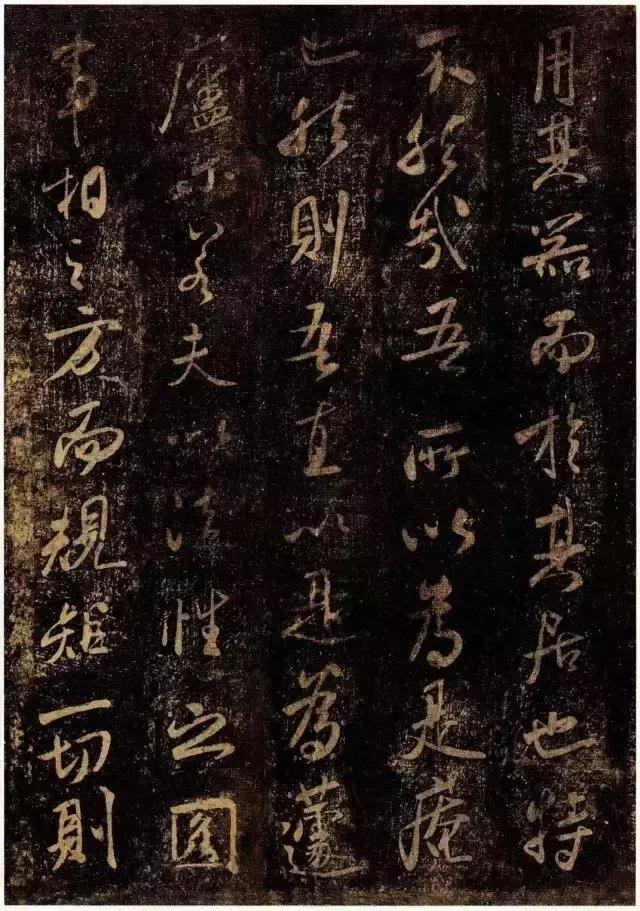 用其器而於其居也特
不然哉吾所以為是庵
也然則吾直以是為蘧
廬尒若夫以法性之圓
事相之方而規矩一切則